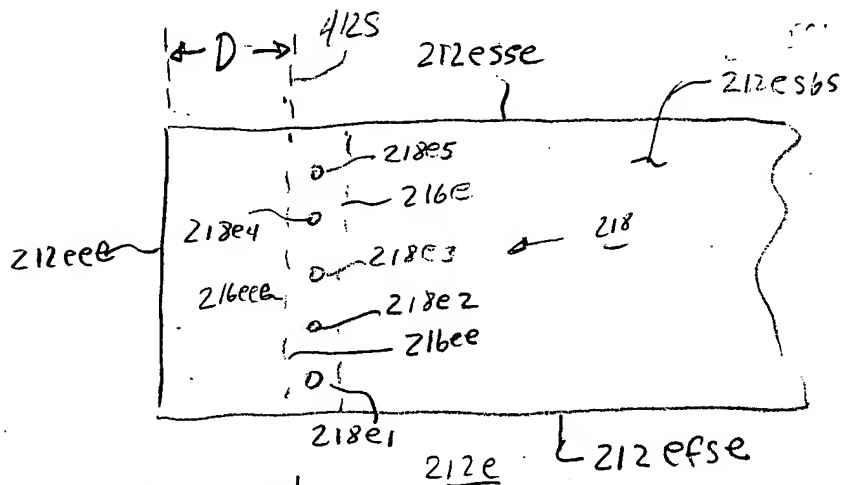 D
412S
212esse
212esbs
218e5
216e
218e4
218
212eee
218e3
216eee
218e2
216ee
218e1
212e
212efse